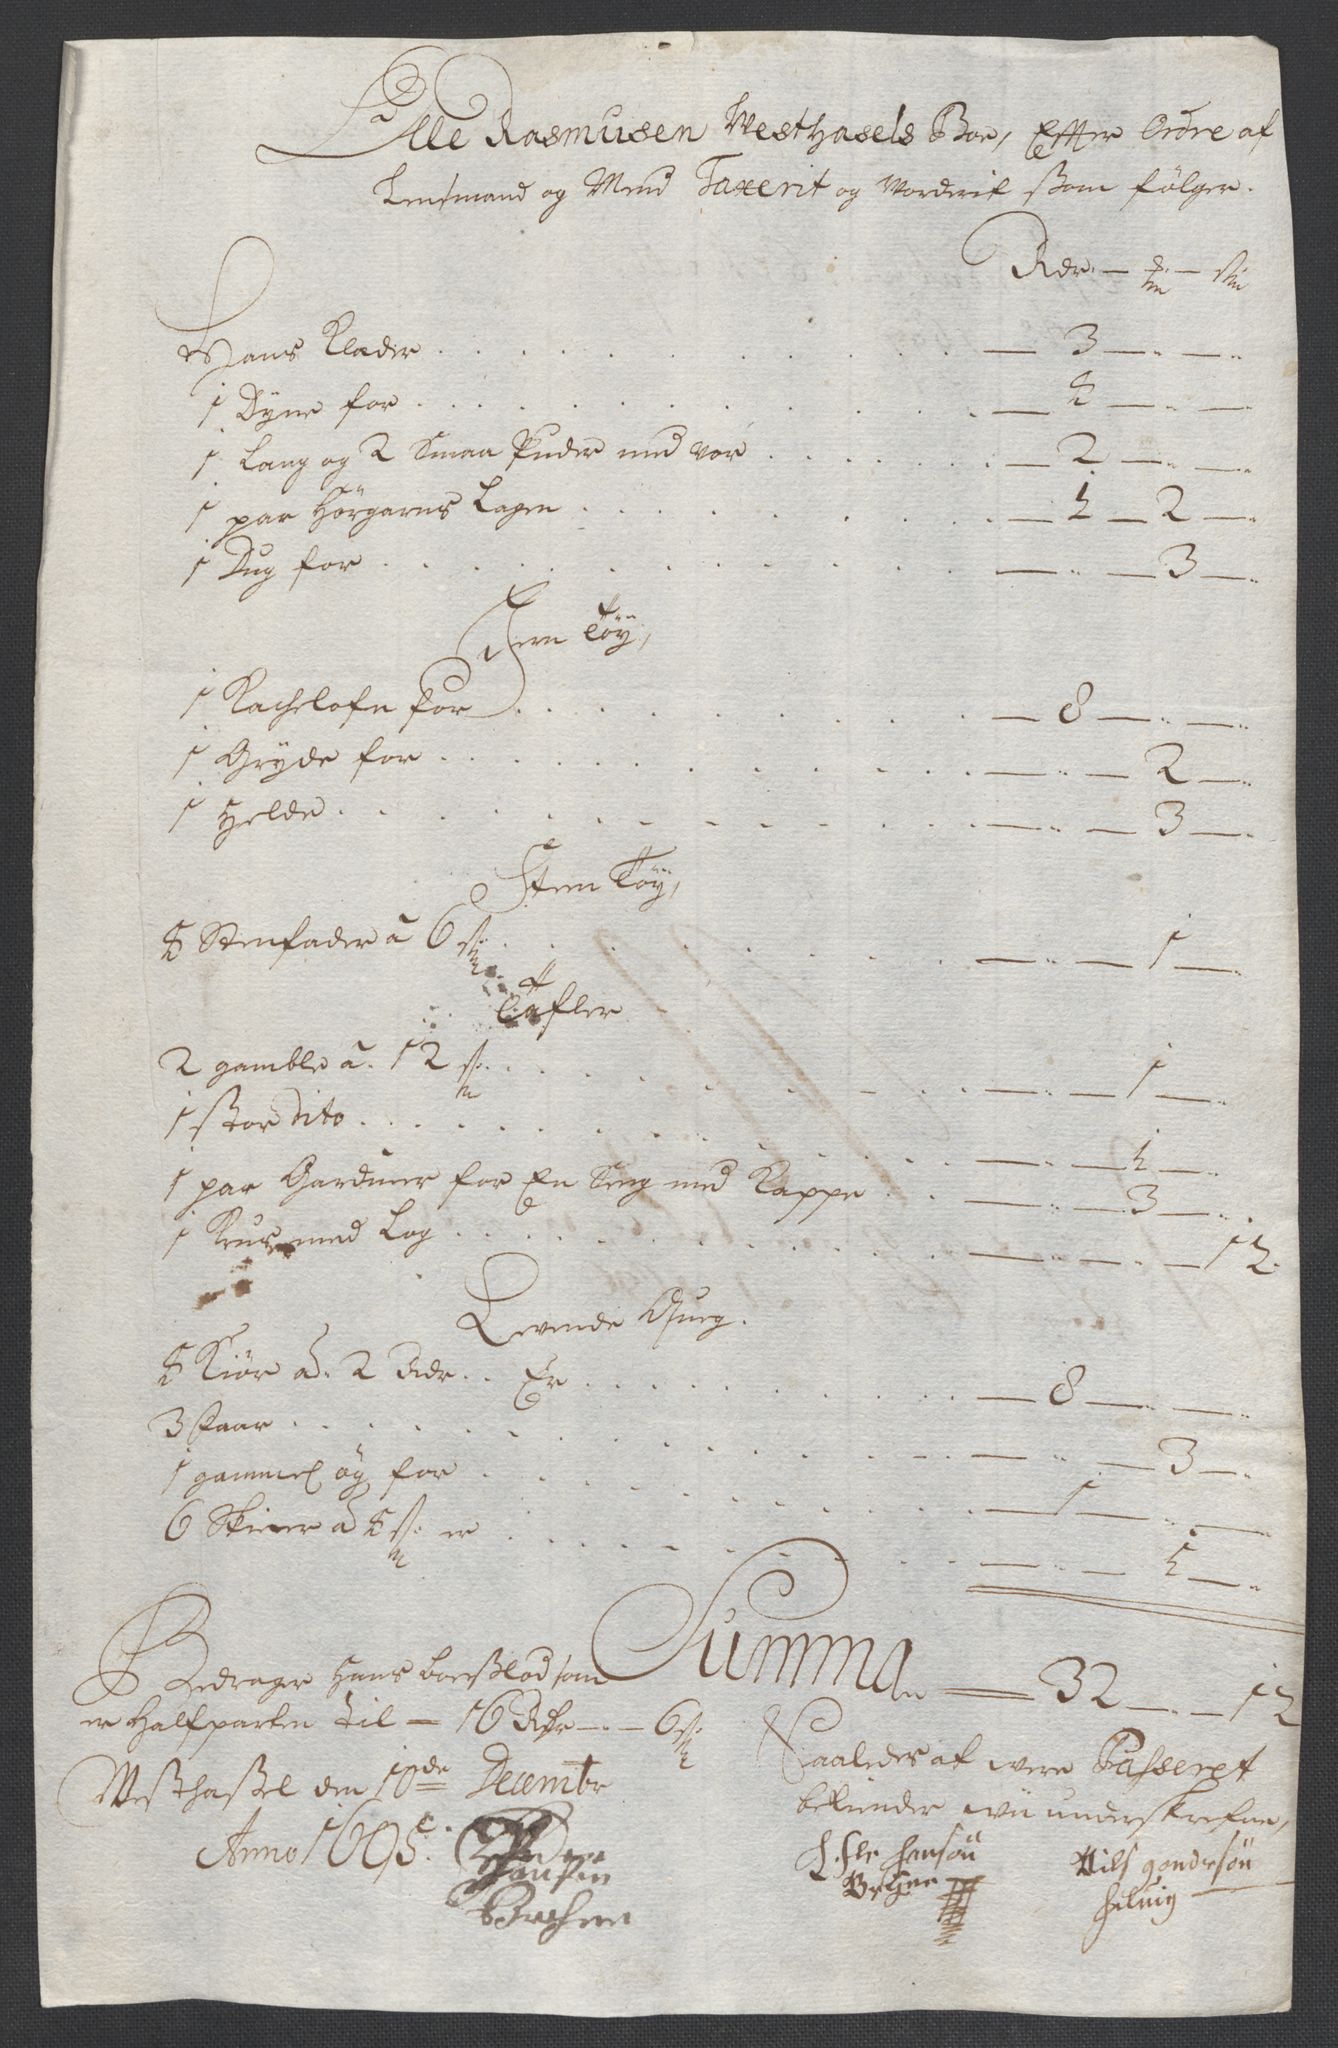 Elle Rasmusen Westhasels Boe, Efter Ordre af
Lensmand og Mend Taxerit og Vorderit som følger.
Rdr. — ort — sk
Hans Klæder . . . — 3 — " — "
1 Dyne for . . . — 4 — " — "
1 Lang og 2 Smaa Puder med vor . . . — 2 — " — "
1 par Hörgarns Lagen . . . — 1 — 2 — "
1 Dug for . . . — " — 3 — "
Jern Töÿ,
1 Kachelofn for . . . — 8 — " — "
1 Grÿde for . . . — " — 2 — "
1 Helde . . . — " — 3 — "
Steen Töÿ,
4 Stenfader a 6 sk . . . — " — 1 — "
Tafler
2 gamble a. 12 sk . . . — " — 1 — "
1 stor dito . . . — " — 1 — "
1 par Gardiner for En Seng med Kappe . . — " — 3 — "
1 Krus med Log . . . — " — " — 12.
Levende Qvæg.
4 Kiör a. 2 Rdr. . Er . . . — 8 — " — "
3 Faar . . . — " — 3 — "
1 gammel øg for . . . — 1 — " — "
6 Skeer a 4 sk er . . . — " — 1 — "
Summa — 32 — " — 12
Bedrager Hans boeslod som
er Halfparten til — 16 Rdr — " — 6 sk
Westhasel den 10de Decembr
Anno 1695.
Saaledes at were Passeret
bekiender wii underskrefne,
Peder
Hansen
Elle Hansön
Nils gondersön